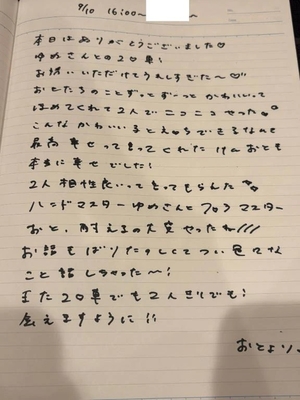 9/10 16:00〜
本日はありがとうございました♡
ゆめさんとの20車!
お誘いいただけてうれしすぎた〜♡
おとたちのことずっとずーっとかわいいって
ほめてくれて2人でニコニコやった
こんなかわいい
最高 幸せって言ってくれたけどおとも
本当に幸せでした!
2人相性良いって言ってもらえた
ハンドマスターゆめさんとフロラマスター
おと、耐えるの大変やったね///
お話もばり楽しくてつい色々な
こと話しちゃった〜!
また20車でも2人きりでも!
会えますように!!
おとより